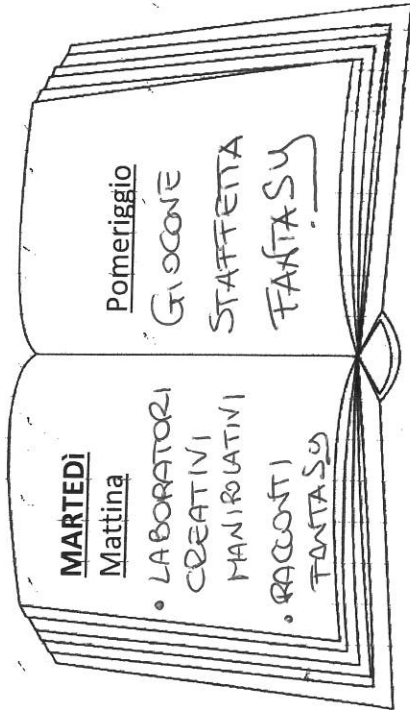 MARTEDÌ
Mattina
• LABORATORI
CREATIVI
MANIPOLATIVI
• RACCONTI
FANTASY
Pomeriggio
GIOCONE
STAFFETTA
FANTASY